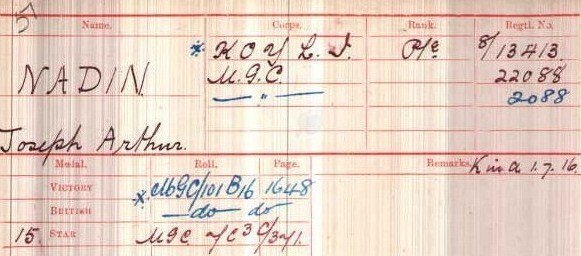 5
Name. Corps. Rank. Regtl. No.
NADIN. * KOYL.I. Pte 8/13413
M.G.C. 22088
— " — 2088
Joseph Arthur.
Medal. Roll. Page. Remarks. K in a 1.7.16
VICTORY * MGC/101B16 1648
BRITISH —do— do
15 STAR MGC